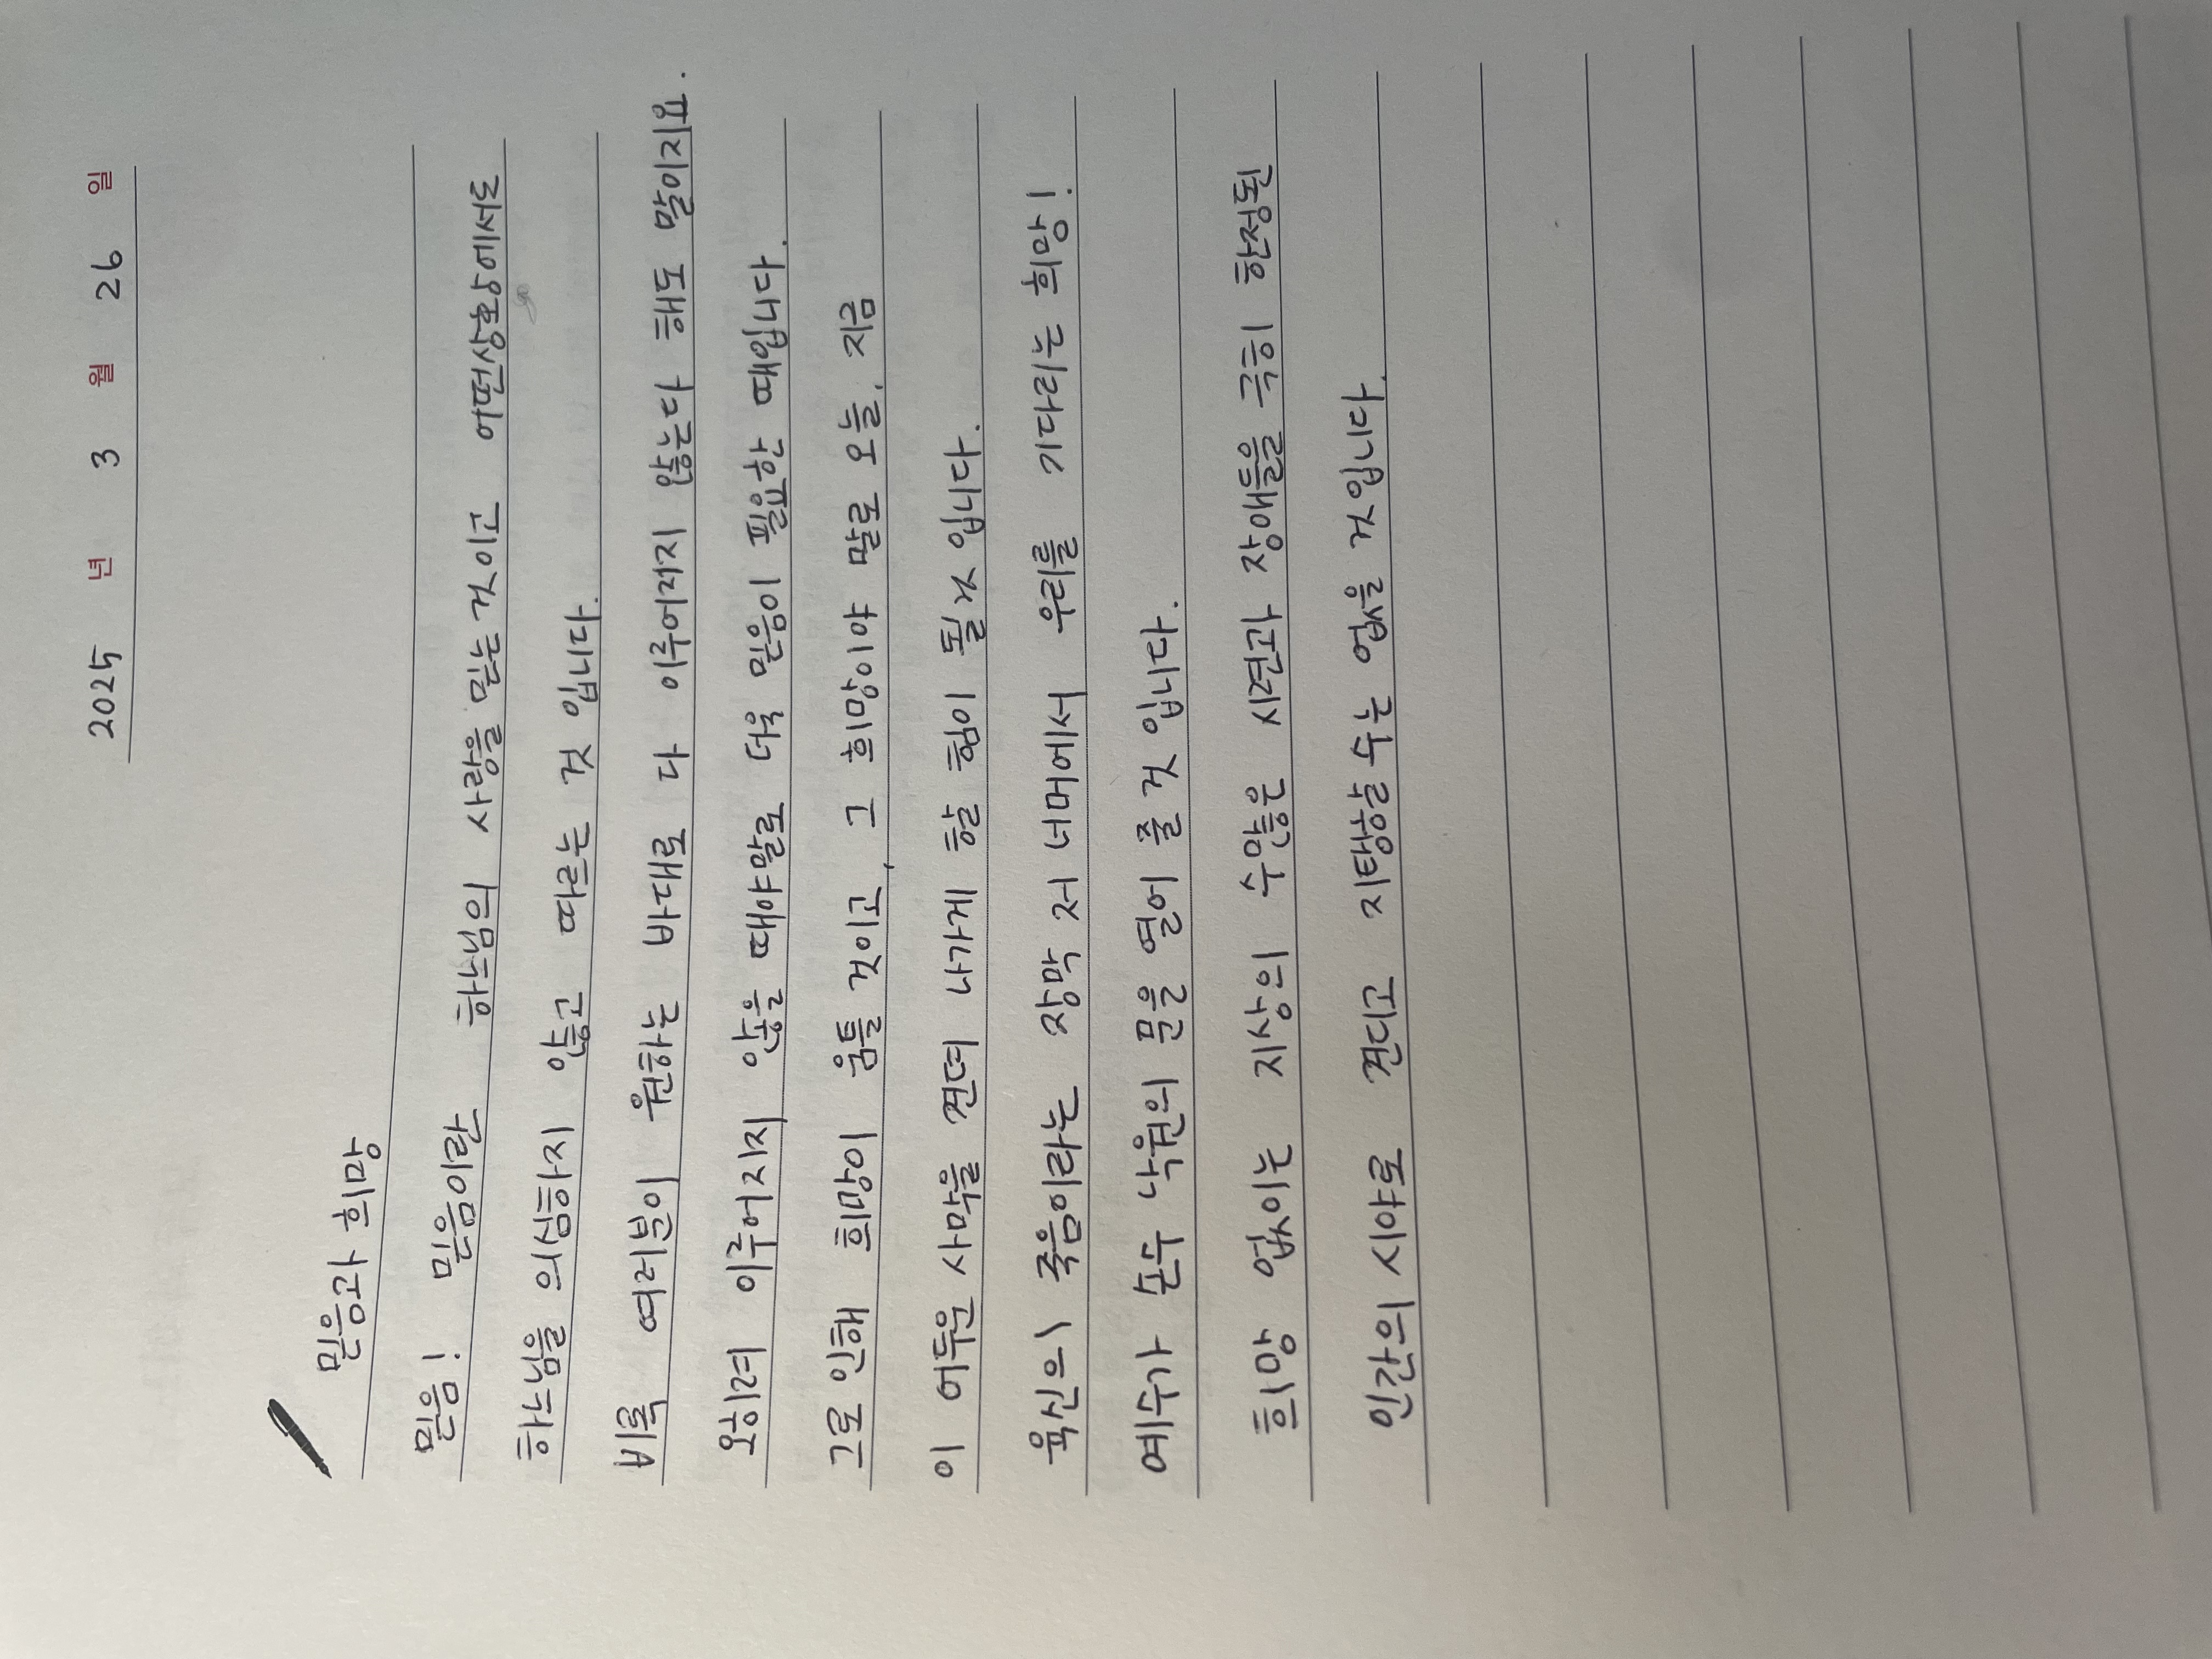 2025 년 3 월 26 일
믿음과 희망
믿음! 믿음이란 하느님의 사랑을 믿는 것이고 어떤상황에서도
하느님을 의심하지 않고 따르는 것 입니다.
비록 여러분이 원하는 바대로 다 이루어지지 않는다 해도 말이지요.
오히려 이루어지지 않을 때야말로 더욱 믿음이 필요한 때입니다.
그로 인해 희망이 움틀 것이고, 그 희망이야 말로 오늘, 지금
이 어두운 사막을 견뎌 나가게 할 힘이 될 것 입니다.
육신의 죽음이라는 장막 저 너머에서 우리를 기다리는 희망!
예수가 손수 낙원의 문을 열어 줄 것 입니다.
희망 없이는 지상의 수많은 시련과 장애들을 극히 한정된
인간의 시야로 견디고 지탱할 수는 없을 것입니다.